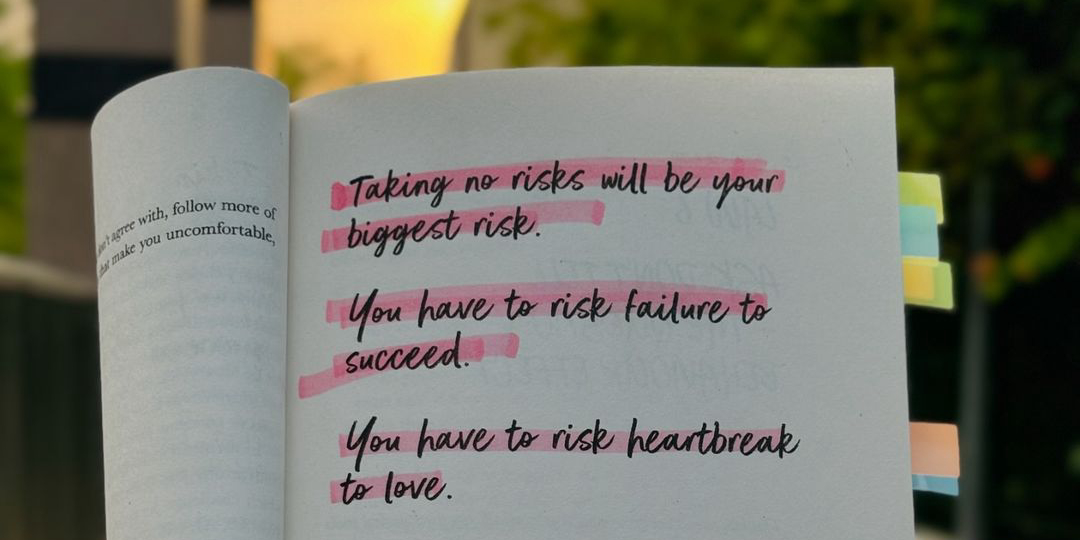 don't agree with, follow more of
that make you uncomfortable,
Taking no risks will be your
biggest risk.
You have to risk failure to
succeed.
You have to risk heartbreak
to love.